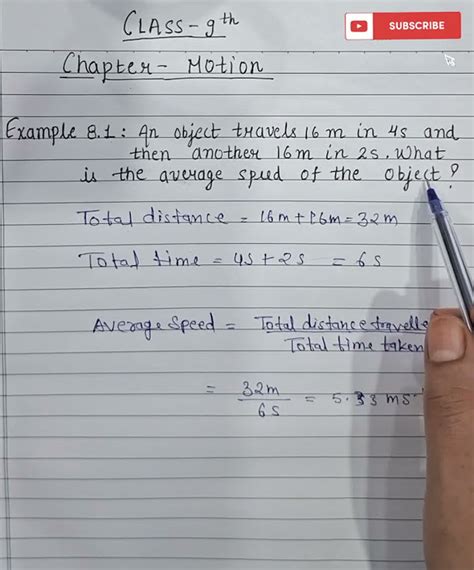 CLASS-9th
SUBSCRIBE
Chapter- Motion
Example 8.1: An object travels 16 m in 4s and
then another 16m in 2s. What
is the average speed of the object?
Total distance = 16m+16m=32m
Total time = 4s+2s = 6s
Average Speed = Total distance travelle
Total time taken
= 32m
6s
= 5.33 ms⁻¹